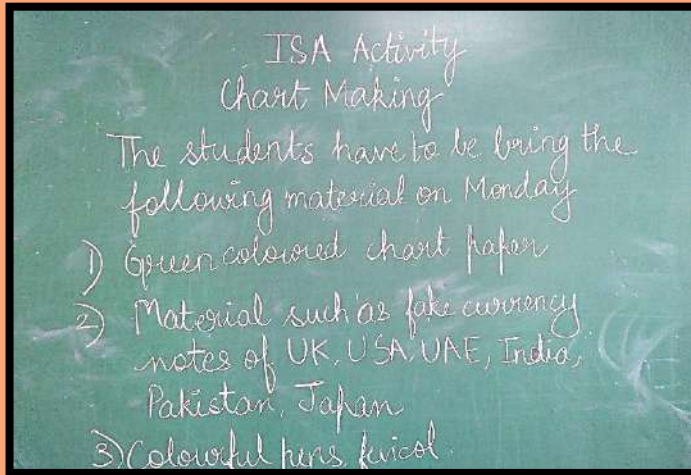 ISA Activity
Chart Making
The students have to be bring the
following material on Monday
1) Green coloured chart paper
2) Material such as fake currency
notes of UK, USA, UAE, India,
Pakistan, Japan
3) Colourful pens, fevicol.